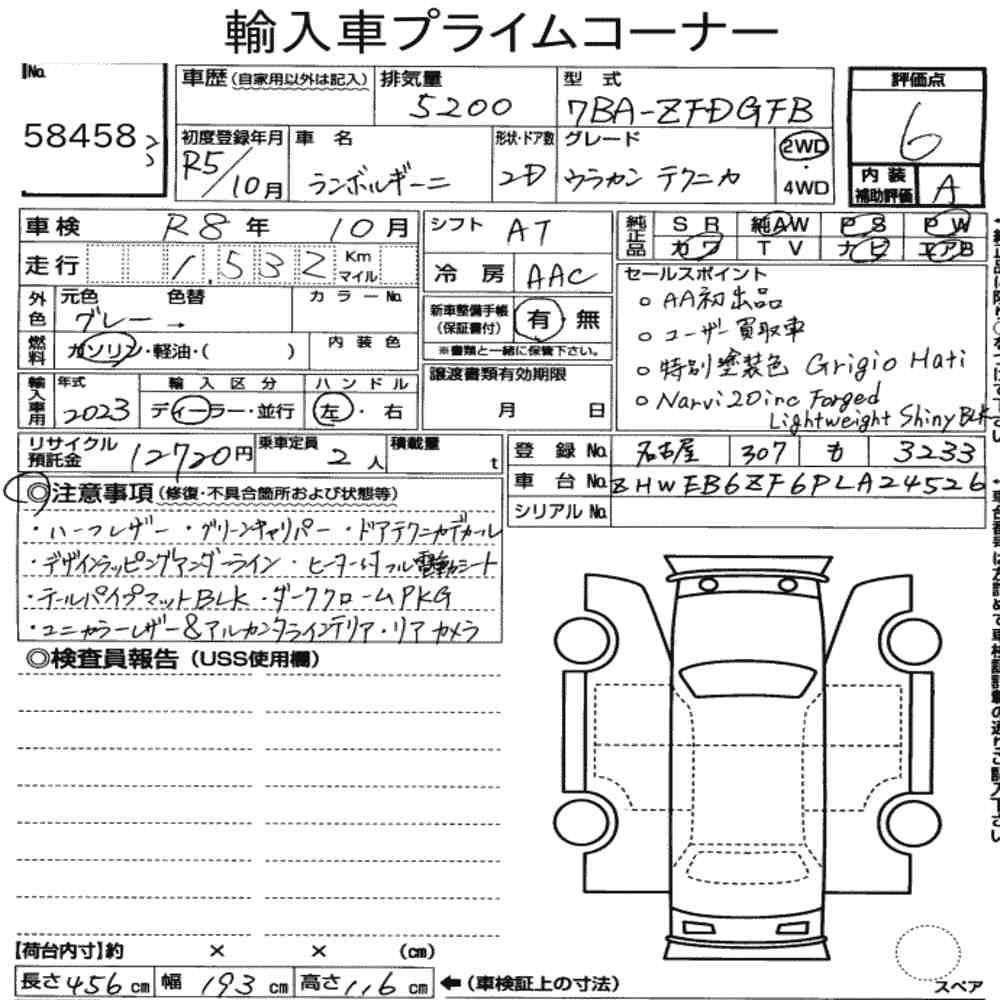 輸入車プライムコーナー
No.
58458
車歴(自家用以外は記入)
排気量
5200
型 式
7BA-ZFDGFB
評価点
6
初度登録年月
R5/10月
車 名
ランボルギーニ
形状・ドア数
2D
グレード
ウラカン テクニカ
2WD
・
4WD
内 装
補助評価
A
車検 R8年 10月
走行 1,532 Km マイル
シフト AT
冷房 AAC
純正品
SR 純AW PS PW
カワ TV ナビ エアB
外色
元色 色替
グレー →
カラーNo.
燃料
ガソリン・軽油・( )
内 装 色
新車整備手帳
(保証書付)
有・無
※書類と一緒に保管下さい。
セールスポイント
○ AA初出品
○ ユーザー買取車
○ 特別塗装色 Grigio Hati
○ Narvi 20inc Forged
Lightweight Shiny BLK
輸入車用
年式
2023
輸 入 区 分
ディーラー・並行
ハ ン ド ル
左・右
譲渡書類有効期限
月 日
リサイクル
預託金
12720円
乗車定員
2人
積載量
t
登 録 No. 名古屋 307 も 3233
車 台 No. ZHWEB6ZF6PLA24526
シリアル No.
◎注意事項(修復・不具合箇所および状態等)
・ハーフレザー ・グリーンキャリパー ・ドアテクニカデカール
・デザインラッピングアンダーライン ・ヒーター付フル電動シート
・テールパイプマットBLK ・ダーククロームPKG
・ユニカラーレザー&アルカンタラインテリア ・リアカメラ
◎検査員報告(USS使用欄)
【荷台内寸】約 × × (cm)
長さ456cm 幅193cm 高さ116cm
←(車検証上の寸法)
スペア